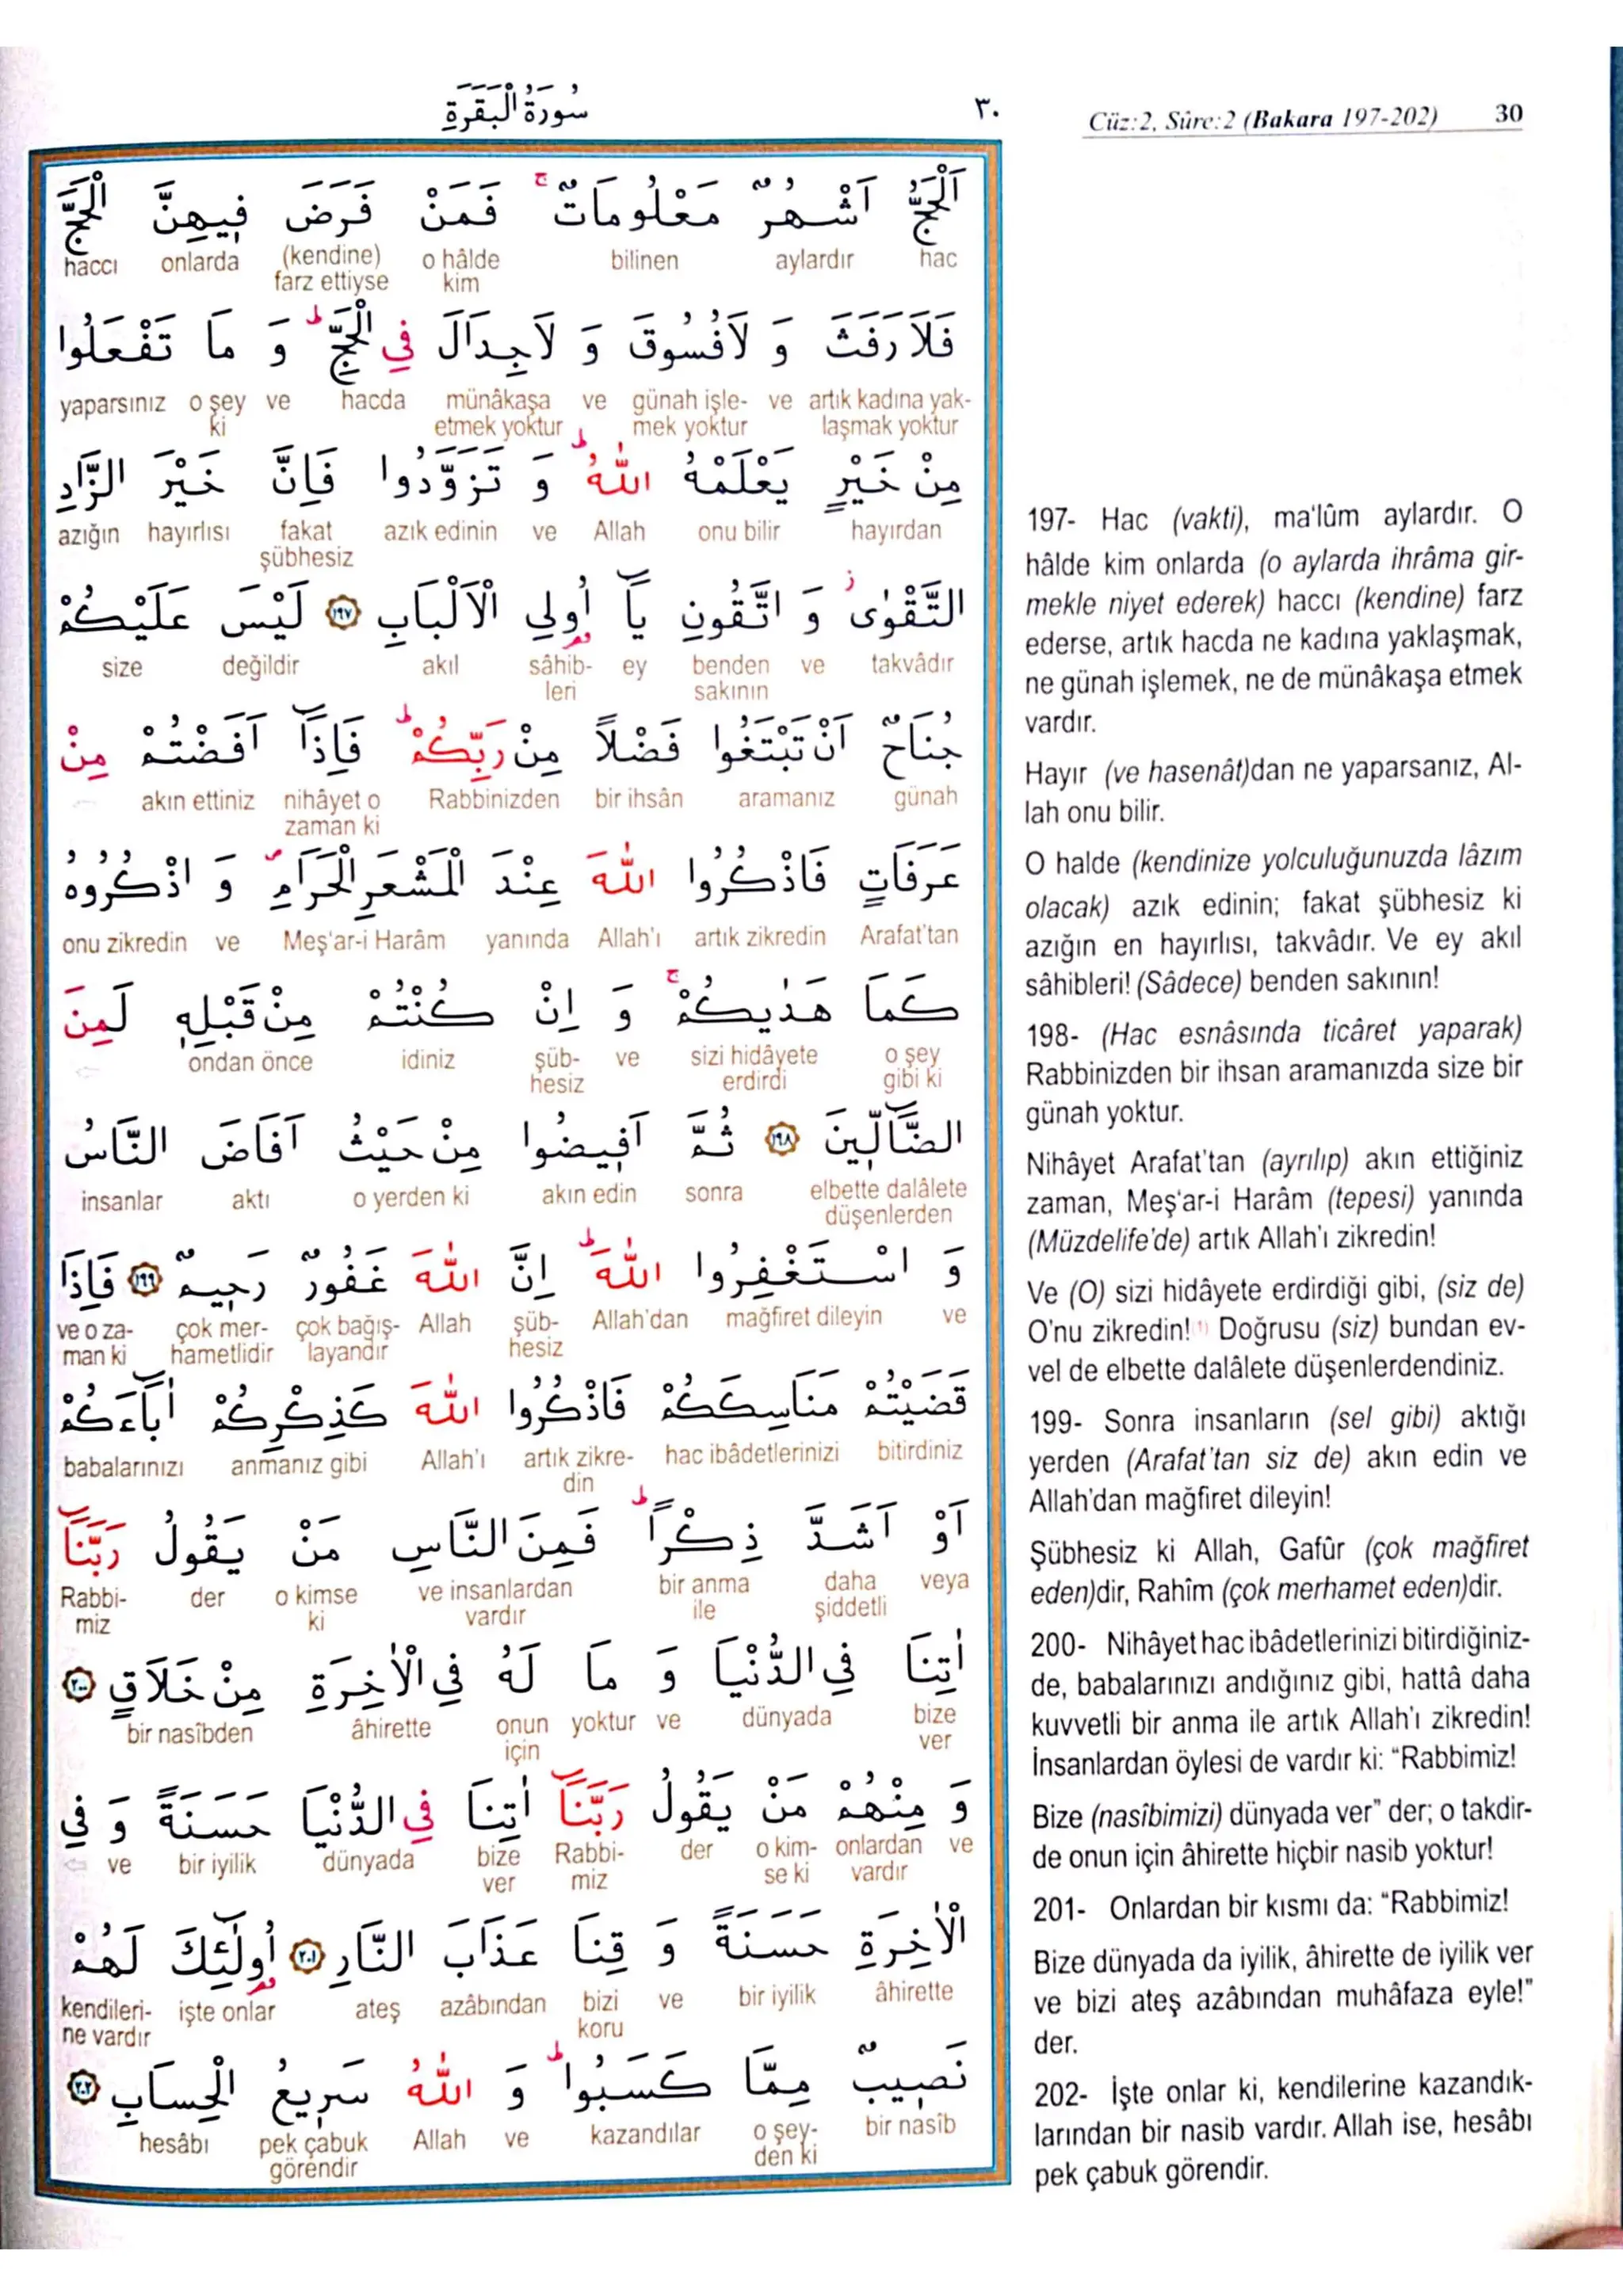 سُورَةُ الْبَقَرَةِ
٣٠
Cüz:2, Sûre:2 (Bakara 197-202) 30
اَلْحَجُّ اَشْهُرٌ مَعْلُومَاتٌۚ فَمَنْ فَرَضَ فٖيهِنَّ الْحَجَّ
hac aylardır bilinen o hâlde kim (kendine) farz ettiyse onlarda haccı
فَلَا رَفَثَ وَ لَا فُسُوقَ وَ لَا جِدَالَ فِي الْحَجِّۜ وَ مَا تَفْعَلُوا
artık kadına yak-laşmak yoktur ve günah işle-mek yoktur ve münâkaşa etmek yoktur hacda ve o şey ki yaparsınız
مِنْ خَيْرٍ يَعْلَمْهُ اللّٰهُۜ وَ تَزَوَّدُوا فَاِنَّ خَيْرَ الزَّادِ
hayırdan onu bilir Allah ve azık edinin fakat şübhesiz hayırlısı azığın
التَّقْوٰىؗ وَ اتَّقُونِ يَٓا اُولِي الْاَلْبَابِ ﴿١٩٧﴾ لَيْسَ عَلَيْكُمْ
takvâdır ve benden sakının ey sâhib-leri akıl değildir size
جُنَاحٌ اَنْ تَبْتَغُوا فَضْلًا مِنْ رَبِّكُمْۜ فَاِذَٓا اَفَضْتُمْ مِنْ
günah aramanız bir ihsân Rabbinizden nihâyet o zaman ki akın ettiniz
عَرَفَاتٍ فَاذْكُرُوا اللّٰهَ عِنْدَ الْمَشْعَرِ الْحَرَامِۖ وَ اذْكُرُوهُ
Arafat'tan artık zikredin Allah'ı yanında Meş'ar-i Harâm ve onu zikredin
كَمَا هَدٰيكُمْۚ وَ اِنْ كُنْتُمْ مِنْ قَبْلِهٖ لَمِنَ
o şey gibi ki sizi hidâyete erdirdi ve şüb-hesiz idiniz ondan önce
الضَّٓالّٖينَ ﴿١٩٨﴾ ثُمَّ اَفٖيضُوا مِنْ حَيْثُ اَفَاضَ النَّاسُ
elbette dalâlete düşenlerden sonra akın edin o yerden ki aktı insanlar
وَ اسْتَغْفِرُوا اللّٰهَۜ اِنَّ اللّٰهَ غَفُورٌ رَحٖيمٌ ﴿١٩٩﴾ فَاِذَا
ve mağfiret dileyin Allah'dan şüb-hesiz Allah çok bağış-layandır çok mer-hametlidir ve o za-man ki
قَضَيْتُمْ مَنَاسِكَكُمْ فَاذْكُرُوا اللّٰهَ كَذِكْرِكُمْ اٰبَٓاءَكُمْ
bitirdiniz hac ibâdetlerinizi artık zikre-din Allah'ı anmanız gibi babalarınızı
اَوْ اَشَدَّ ذِكْرًاۜ فَمِنَ النَّاسِ مَنْ يَقُولُ رَبَّنَٓا
veya daha şiddetli bir anma ile ve insanlardan vardır o kimse ki der Rabbi-miz
اٰتِنَا فِي الدُّنْيَا وَ مَا لَهُ فِي الْاٰخِرَةِ مِنْ خَلَاقٍ ﴿٢٠٠﴾
bize ver dünyada ve yoktur onun için âhirette bir nasîbden
وَ مِنْهُمْ مَنْ يَقُولُ رَبَّنَٓا اٰتِنَا فِي الدُّنْيَا حَسَنَةً وَ فِي
ve onlardan vardır o kim-se ki der Rabbi-miz bize ver dünyada bir iyilik ve
الْاٰخِرَةِ حَسَنَةً وَ قِنَا عَذَابَ النَّارِ ﴿٢٠١﴾ اُولٰٓئِكَ لَهُمْ
âhirette bir iyilik ve bizi koru azâbından ateş işte onlar kendileri-ne vardır
نَصٖيبٌ مِمَّا كَسَبُواۜ وَ اللّٰهُ سَرٖيعُ الْحِسَابِ ﴿٢٠٢﴾
bir nasîb o şey-den ki kazandılar ve Allah pek çabuk görendir hesâbı
197- Hac (vakti), ma'lûm aylardır. O
hâlde kim onlarda (o aylarda ihrâma gir-
mekle niyet ederek) haccı (kendine) farz
ederse, artık hacda ne kadına yaklaşmak,
ne günah işlemek, ne de münâkaşa etmek
vardır.
Hayır (ve hasenât)dan ne yaparsanız, Al-
lah onu bilir.
O halde (kendinize yolculuğunuzda lâzım
olacak) azık edinin; fakat şübhesiz ki
azığın en hayırlısı, takvâdır. Ve ey akıl
sâhibleri! (Sâdece) benden sakının!
198- (Hac esnâsında ticâret yaparak)
Rabbinizden bir ihsan aramanızda size bir
günah yoktur.
Nihâyet Arafat'tan (ayrılıp) akın ettiğiniz
zaman, Meş'ar-i Harâm (tepesi) yanında
(Müzdelife'de) artık Allah'ı zikredin!
Ve (O) sizi hidâyete erdirdiği gibi, (siz de)
O'nu zikredin! Doğrusu (siz) bundan ev-
vel de elbette dalâlete düşenlerdendiniz.
199- Sonra insanların (sel gibi) aktığı
yerden (Arafat'tan siz de) akın edin ve
Allah'dan mağfiret dileyin!
Şübhesiz ki Allah, Gafûr (çok mağfiret
eden)dir, Rahîm (çok merhamet eden)dir.
200- Nihâyet hac ibâdetlerinizi bitirdiğiniz-
de, babalarınızı andığınız gibi, hattâ daha
kuvvetli bir anma ile artık Allah'ı zikredin!
İnsanlardan öylesi de vardır ki: "Rabbimiz!
Bize (nasîbimizi) dünyada ver" der; o takdir-
de onun için âhirette hiçbir nasib yoktur!
201- Onlardan bir kısmı da: "Rabbimiz!
Bize dünyada da iyilik, âhirette de iyilik ver
ve bizi ateş azâbından muhâfaza eyle!"
der.
202- İşte onlar ki, kendilerine kazandık-
larından bir nasib vardır. Allah ise, hesâbı
pek çabuk görendir.